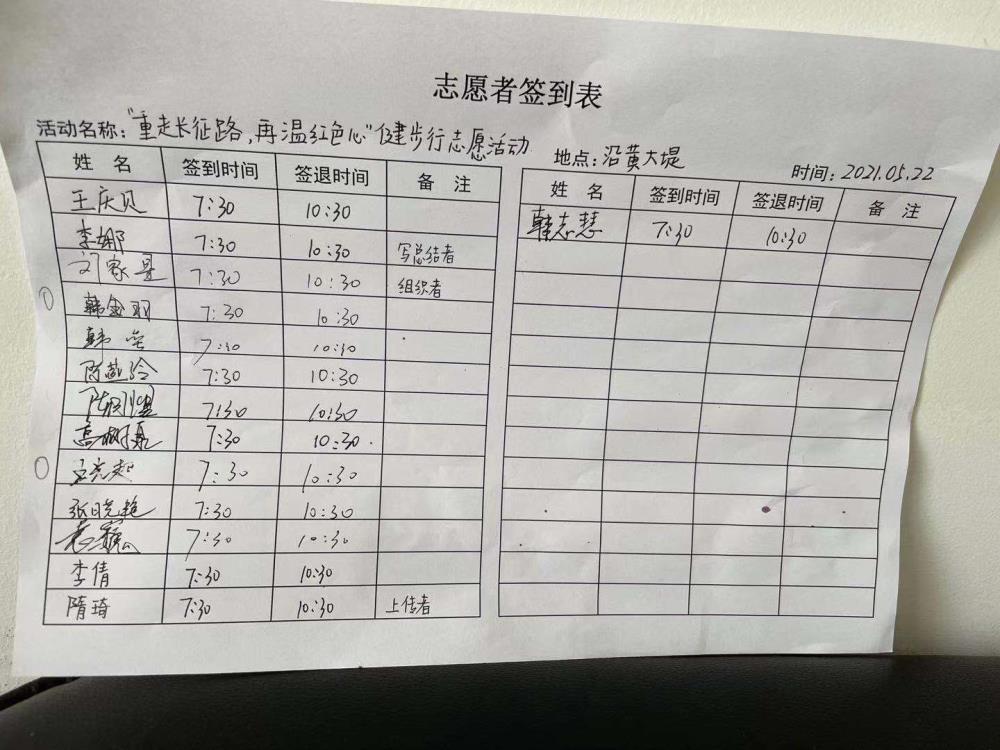 志愿者签到表
活动名称:"重走长征路,再温红色心"健步行志愿活动 地点:沿黄大堤 时间:2021.05.22
姓 名 签到时间 签退时间 备 注
王庆贝 7:30 10:30
李娜 7:30 10:30 写总结者
刘家昱 7:30 10:30 组织者
韩金羽 7:30 10:30
韩 7:30 10:30
陈燕玲 7:30 10:30
陈 7:30 10:30
高树嘉 7:30 10:30
王克起 7:30 10:30
张晓艳 7:30 10:30
7:30 10:30
李倩 7:30 10:30
隋琦 7:30 10:30 上传者
姓 名 签到时间 签退时间 备 注
韩志慧 7:30 10:30